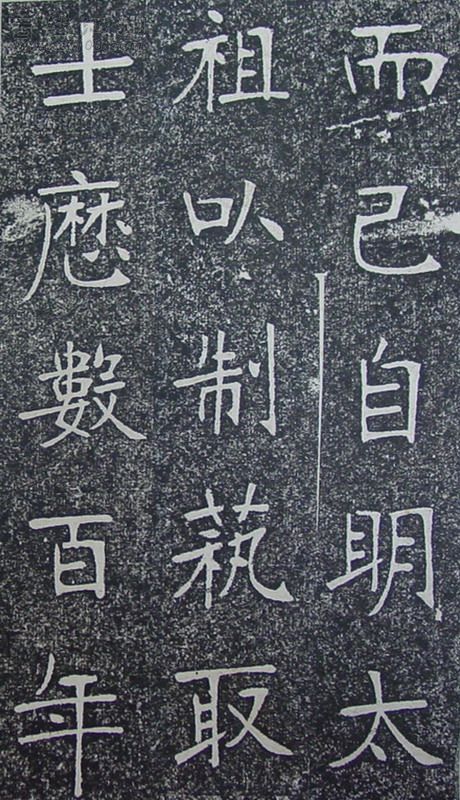 而已自明太
祖以制蓺取
士歷數百年